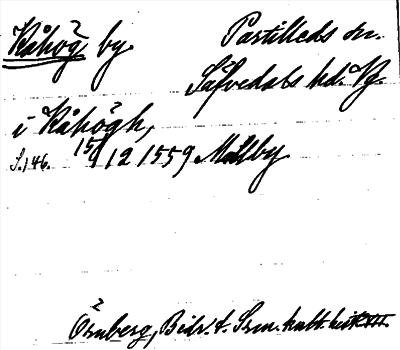 Kåhög by. Partilleds sn.
Säfvedals hd. Vg.
i Kåhögh,
S. 146. 15/12 1559 Mellby
Örnberg, Bidr. t. Sven. kult. hist. III.